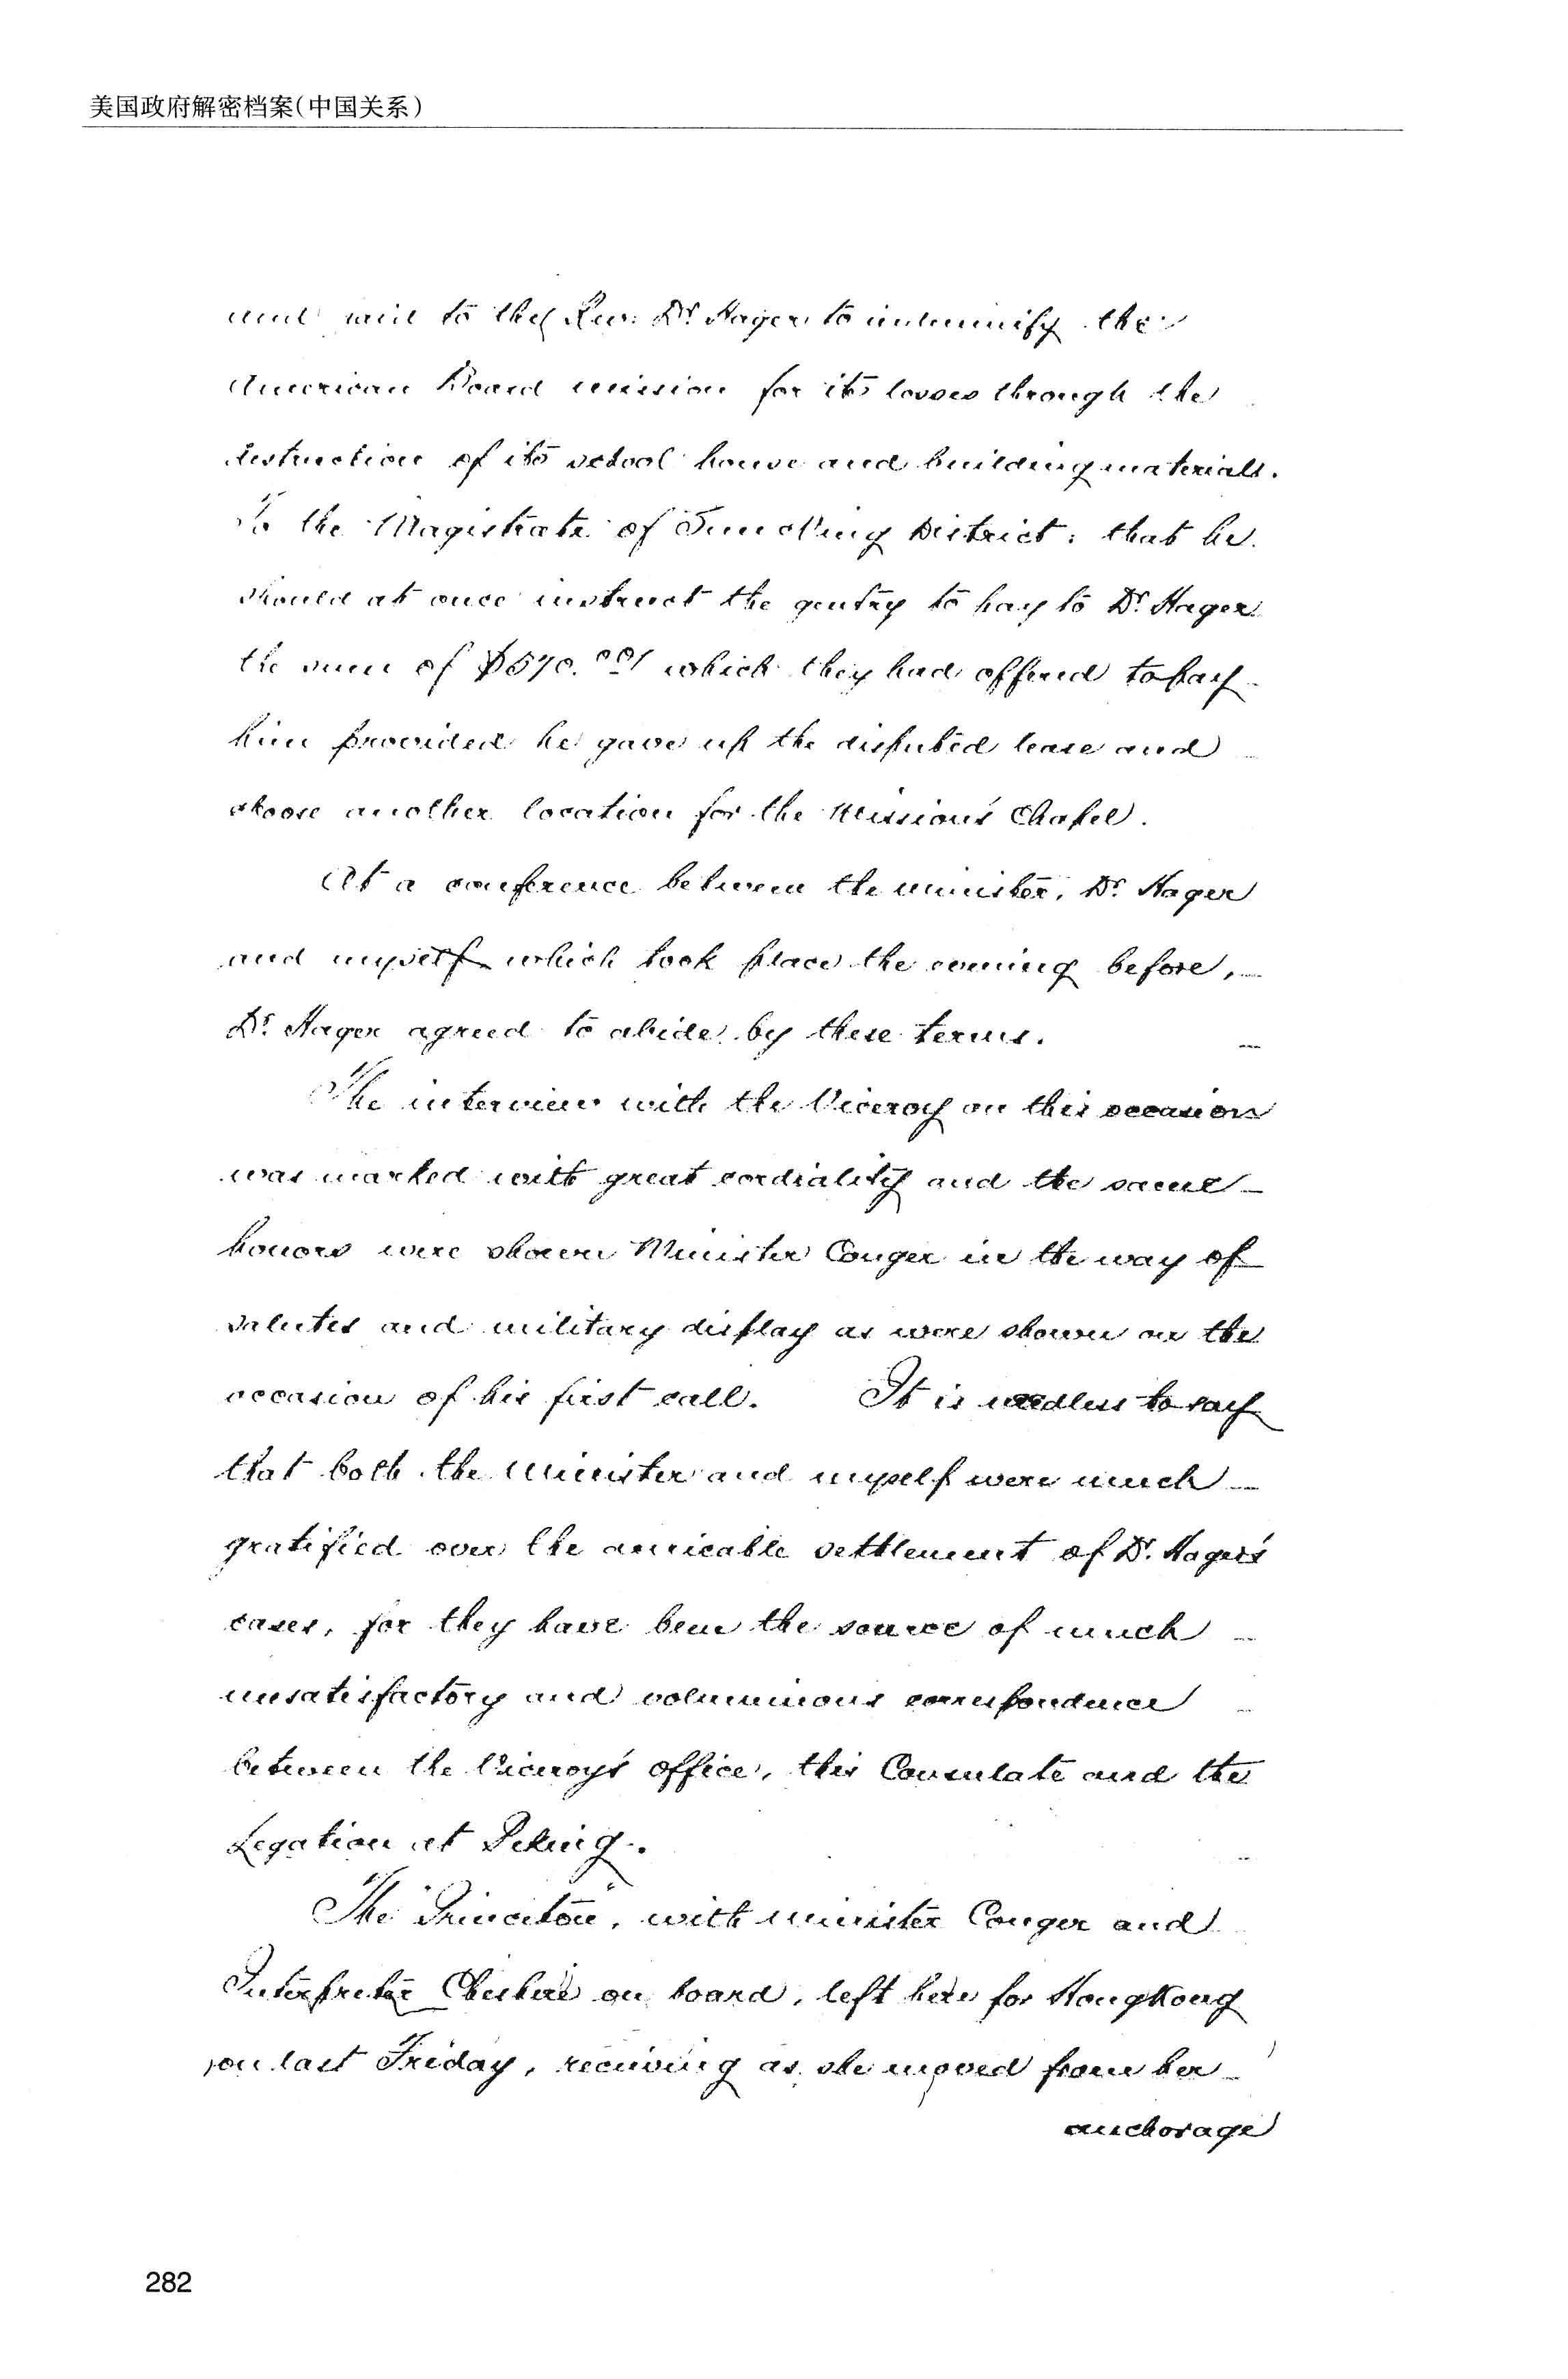 美国政府解密档案(中国关系)
and paid to the Rev. Dr. Hager to indemnify the
American Board mission for its losses through the
destruction of its school house and building materials.
To the Magistrate of Sun Ning District: that he
should at once instruct the gentry to pay to Dr. Hager
the sum of $570.00/ which they had offered to pay
him provided he gave up the disputed lease and
choose another location for the Mission's Chapel.
At a conference between the minister, Dr. Hager
and myself which took place the evening before,
Dr. Hager agreed to abide by these terms.
The interview with the Viceroy on this occasion
was marked with great cordiality and the same
honors were shown Minister Conger in the way of
salutes and military display as were shown on the
occasion of his first call. It is needless to say
that both the Minister and myself were much
gratified over the amicable settlement of Dr. Hager's
cases, for they have been the source of much
unsatisfactory and voluminous correspondence
between the Viceroy's office, this Consulate and the
Legation at Peking.
The "Princeton", with minister Conger and
Interpreter Cheshire on board, left here for Hongkong
on last Friday, receiving as she moved from her
anchorage
282